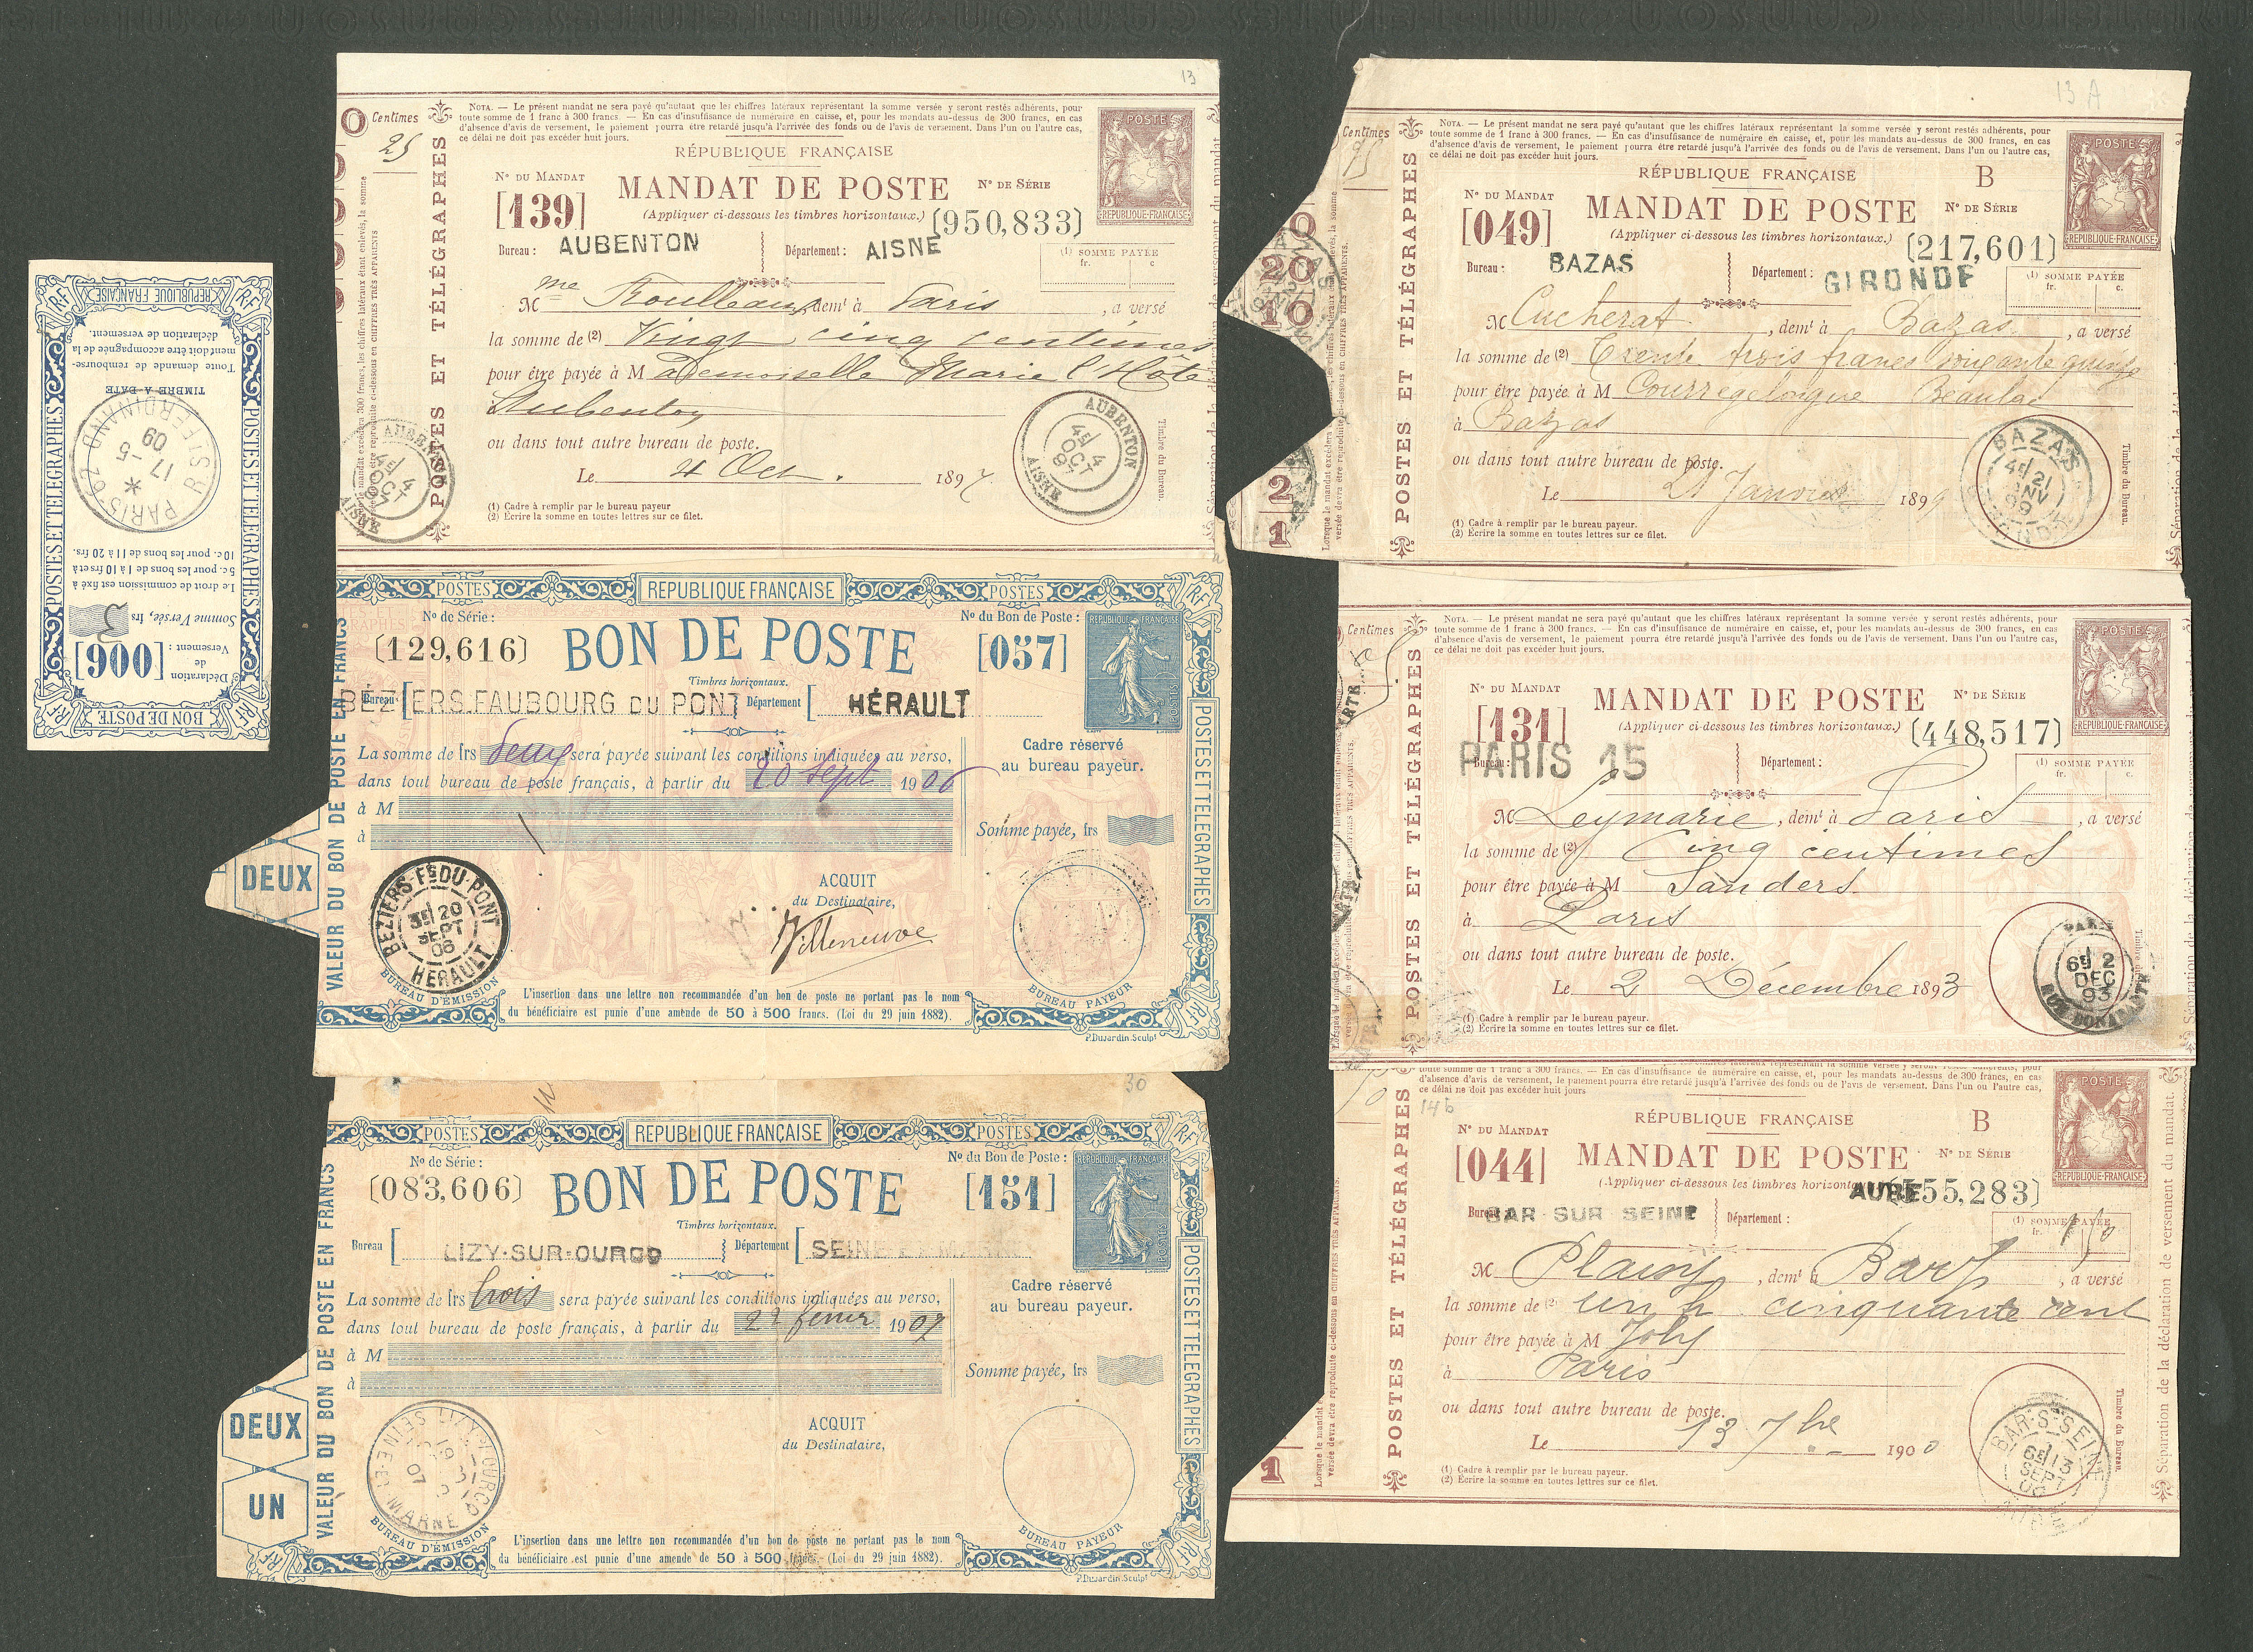 13
Centimes
25
NOTA. — Le présent mandat ne sera payé qu'autant que les chiffres latéraux représentant la somme versée y seront restés adhérents, pour
toute somme de 1 franc à 300 francs. — En cas d'insuffisance de numéraire en caisse, et, pour les mandats au-dessus de 300 francs, en cas
d'absence d'avis de versement, le paiement pourra être retardé jusqu'à l'arrivée des fonds ou de l'avis de versement. Dans l'un ou l'autre cas,
ce délai ne doit pas excéder huit jours.
POSTES
REPUBLIQUE-FRANÇAISE
RÉPUBLIQUE FRANÇAISE
N° DU MANDAT
[139]
MANDAT DE POSTE
(Appliquer ci-dessous les timbres horizontaux.)
N° DE SÉRIE
[950,833]
Bureau : AUBENTON
Département : AISNE
(1) SOMME PAYÉE
fr. c
Mme Roulleaux, demt à Paris, a versé
la somme de (2) Vingt cinq centimes
pour être payée à Mademoiselle Marie l'Hôte
à Aubenton
ou dans tout autre bureau de poste.
Le 4 Oct. 1897
(1) Cadre à remplir par le bureau payeur
(2) Ecrire la somme en toutes lettres sur ce filet.
POSTES ET TÉLÉGRAPHES
AUBENTON
4E 4
OCT
97
AISNE
Timbre du Bureau.
REPUBLIQUE FRANÇAISE
Toute demande de rembourse-
ment doit être accompagnée de la
déclaration de versement.
TIMBRE-A-DATE
PARIS 62
R. ST FERDINAND
17 -5
09
Le droit de commission est fixé à
5 c. pour les bons de 1 à 10 frs et à
10 c. pour les bons de 11 à 20 frs.
Somme Versée, frs 3
Déclaration
de
Versement :
[006]
BON DE POSTE
POSTES ET TELEGRAPHES
POSTES ET TELEGRAPHES
POSTES
REPUBLIQUE FRANÇAISE
POSTES
No de Série :
(129,616)
BON DE POSTE
No du Bon de Poste :
[057]
REPUBLIQUE FRANÇAISE
POSTES
Timbres horizontaux.
Bureau BÉZIERS.FAUBOURG DU PONT
Département HÉRAULT
La somme de frs deux sera payée suivant les conditions indiquées au verso,
dans tout bureau de poste français, à partir du 20 Sept 1906
à M
à
Cadre réservé
au bureau payeur.
Somme payée, frs
DEUX
VALEUR DU BON DE POSTE EN FRANCS
BEZIERS-FG DU-PONT
3E 20
SEPT
06
HERAULT
BUREAU D'EMISSION
ACQUIT
du Destinataire,
Villeneuve
BUREAU PAYEUR
L'insertion dans une lettre non recommandée d'un bon de poste ne portant pas le nom
du bénéficiaire est punie d'une amende de 50 à 500 francs. (Loi du 29 juin 1882).
P.Dujardin.Sculpt
POSTES ET TELEGRAPHES
30
POSTES
REPUBLIQUE FRANÇAISE
POSTES
No de Série :
(083,606)
BON DE POSTE
No du Bon de Poste :
[151]
REPUBLIQUE FRANÇAISE
POSTES
Timbres horizontaux.
Bureau LIZY-SUR-OURCQ
Département SEINE
La somme de frs trois sera payée suivant les conditions indiquées au verso,
dans tout bureau de poste français, à partir du 1907
à M
à
Cadre réservé
au bureau payeur.
Somme payée, frs
DEUX
UN
VALEUR DU BON DE POSTE EN FRANCS
07
BUREAU D'EMISSION
ACQUIT
du Destinataire,
BUREAU PAYEUR
L'insertion dans une lettre non recommandée d'un bon de poste ne portant pas le nom
du bénéficiaire est punie d'une amende de 50 à 500 francs. (Loi du 29 juin 1882).
P.Dujardin.Sculpt
POSTES ET TELEGRAPHES
13 A
Centimes
75
NOTA. — Le présent mandat ne sera payé qu'autant que les chiffres latéraux représentant la somme versée y seront restés adhérents, pour
toute somme de 1 franc à 300 francs. — En cas d'insuffisance de numéraire en caisse, et, pour les mandats au-dessus de 300 francs, en cas
d'absence d'avis de versement, le paiement pourra être retardé jusqu'à l'arrivée des fonds ou de l'avis de versement. Dans l'un ou l'autre cas,
ce délai ne doit pas excéder huit jours.
POSTES
REPUBLIQUE-FRANÇAISE
RÉPUBLIQUE FRANÇAISE
B
N° DU MANDAT
[049]
MANDAT DE POSTE
(Appliquer ci-dessous les timbres horizontaux.)
N° DE SÉRIE
[217,601]
Bureau : BAZAS
Département : GIRONDE
(1) SOMME PAYÉE
fr. c.
M Cucherat, demt à Bazas, a versé
la somme de (2) Trente trois francs soixante quinze
pour être payée à M Courrégelongue Beaulac
à Bazas
ou dans tout autre bureau de poste.
Le 21 Janvier 1899
(1) Cadre à remplir par le bureau payeur.
(2) Ecrire la somme en toutes lettres sur ce filet.
20
10
2
1
POSTES ET TÉLÉGRAPHES
BAZAS
4E 21
JANV
99
GIRONDE
Timbre du Bureau.
Centimes
NOTA. — Le présent mandat ne sera payé qu'autant que les chiffres latéraux représentant la somme versée y seront restés adhérents, pour
toute somme de 1 franc à 300 francs. — En cas d'insuffisance de numéraire en caisse, et, pour les mandats au-dessus de 300 francs, en cas
d'absence d'avis de versement, le paiement pourra être retardé jusqu'à l'arrivée des fonds ou de l'avis de versement. Dans l'un ou l'autre cas,
ce délai ne doit pas excéder huit jours.
POSTES
REPUBLIQUE-FRANÇAISE
N° DU MANDAT
[131]
MANDAT DE POSTE
(Appliquer ci-dessous les timbres horizontaux.)
N° DE SÉRIE
[448,517]
Bureau : PARIS 15
Département :
(1) SOMME PAYÉE
fr. c.
M Leymarie, demt à Paris, a versé
la somme de (2) Cinq centimes
pour être payée à M Sanders
à Paris
ou dans tout autre bureau de poste.
Le 2 Décembre 1893
(1) Cadre à remplir par le bureau payeur.
(2) Ecrire la somme en toutes lettres sur ce filet.
POSTES ET TÉLÉGRAPHES
PARIS
6E 2
DEC
93
RUE BONAPARTE
toute somme de 1 franc à 300 francs. — En cas d'insuffisance de numéraire en caisse, et, pour les mandats au-dessus de 300 francs, en cas
d'absence d'avis de versement, le paiement pourra être retardé jusqu'à l'arrivée des fonds ou de l'avis de versement. Dans l'un ou l'autre cas,
ce délai ne doit pas excéder huit jours
14 b
POSTES
REPUBLIQUE-FRANÇAISE
RÉPUBLIQUE FRANÇAISE
B
N° DU MANDAT
[044]
MANDAT DE POSTE
(Appliquer ci-dessous les timbres horizontaux
N° DE SÉRIE
AUBE 55,283]
Bureau BAR-SUR-SEINE
Département :
(1) SOMME PAYÉE
fr. 1 50
M, demt à Bar s/, a versé
la somme de (2) un fr cinquante cent
pour être payée à M Joly
à Paris
ou dans tout autre bureau de poste.
Le 13 7bre 1900
(1) Cadre à remplir par le bureau payeur.
(2) Ecrire la somme en toutes lettres sur ce filet.
1
POSTES ET TÉLÉGRAPHES
BAR-S-SEINE
6E 13
SEPT
00
Timbre du Bureau.
Séparation de la déclaration de versement du mandat.